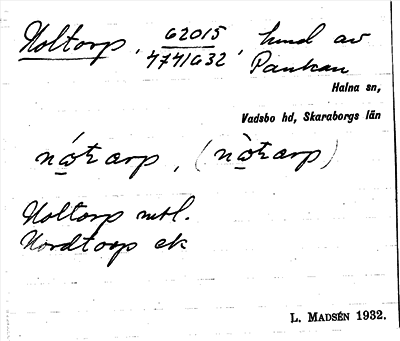 Noltorp, 62015/4741632, hmd av
Pankan
Halna sn,
Vadsbo hd, Skaraborgs län
nó̱tarp, (nò̱tarp)
Noltorp mtl.
Nordtorp ek
L. MADSÉN 1932.